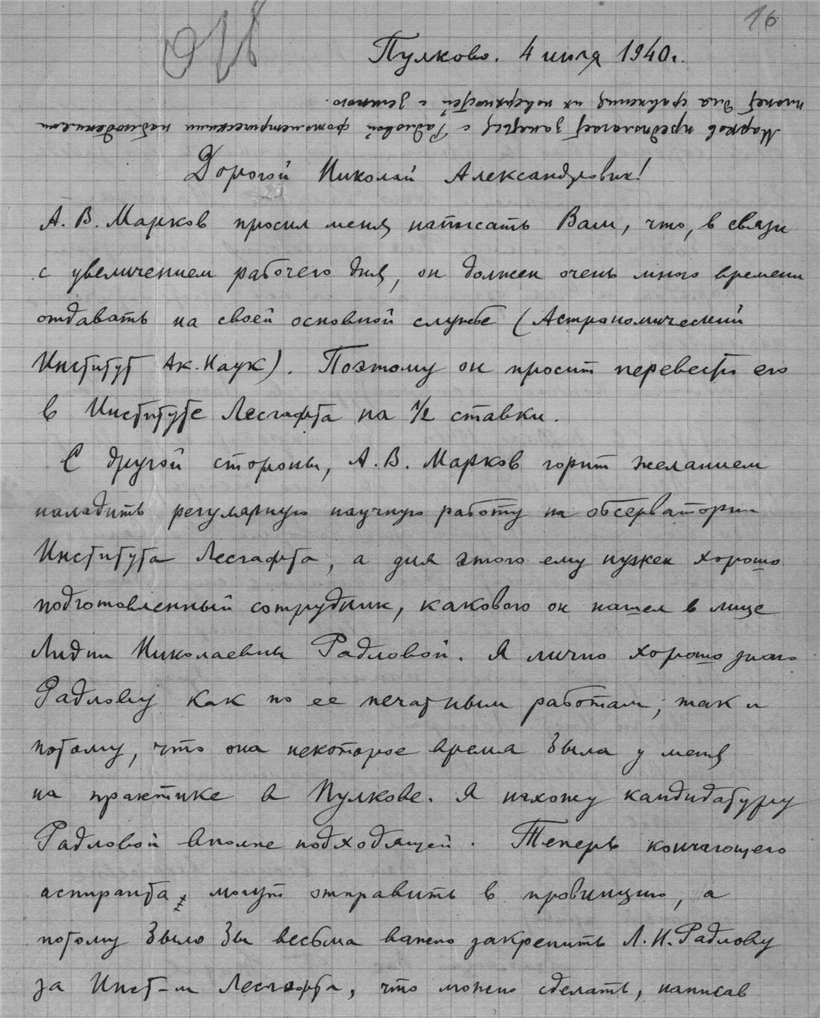 16
Пулково. 4 июля 1940г.
Марков предполагает заняться с Радловой фотометрическими наблюдениями
планет для сравнения их поверхностей с земною.
Дорогой Николай Александрович!
А. В. Марков просил меня написать Вам, что, в связи
с увеличением рабочего дня, он должен очень много времени
отдавать на своей основной службе (Астрономический
Институт Ак. Наук). Поэтому он просит перевести его
в Институте Лесгафта на 1/2 ставки.
С другой стороны, А. В. Марков горит желанием
наладить регулярную научную работу на обсерватории
Института Лесгафта, а для этого ему нужен хорошо
подготовленный сотрудник, какового он нашел в лице
Лидии Николаевны Радловой. Я лично хорошо знаю
Радлову как по ее печатным работам, так и
потому, что она некоторое время была у меня
на практике в Пулкове. Я нахожу кандидатуру
Радловой вполне подходящей. Теперь кончающего
аспиранта могут отправить в провинцию, а
потому было бы весьма важно закрепить Л. Н. Радлову
за Инст-м Лесгафта, что можно сделать, написав